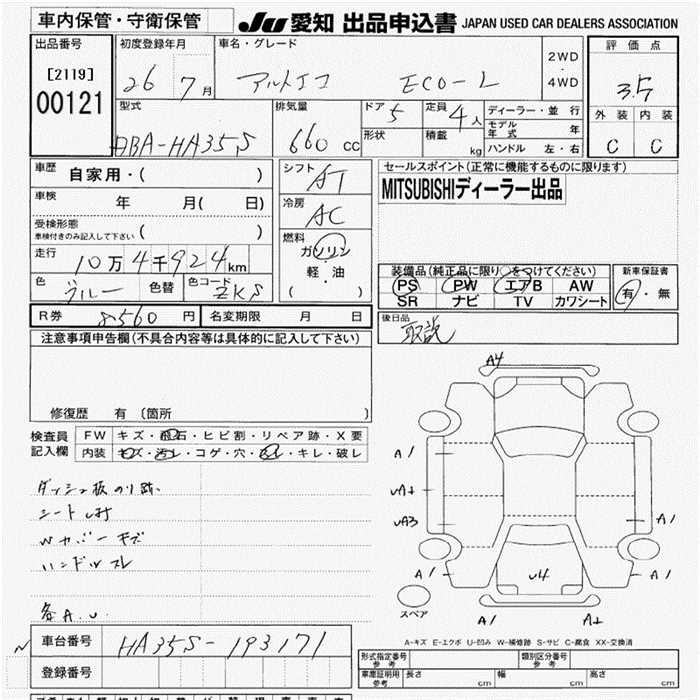 車内保管・守衛保管
JU 愛知 出品申込書 JAPAN USED CAR DEALERS ASSOCIATION
出品番号 [2119] 00121
初度登録年月 26 7月
車名・グレード アルトエコ ECO-L
2WD・4WD
評価点 3.5
外装 内装
C C
型式 DBA-HA35S
排気量 660 cc
ドア 5
形状
定員 4人
積載 kg
ディーラー・並行
モデル年式 年
ハンドル 左・右
車歴 自家用・( )
車検 年 月( 日)
受検形態
車検付きのみ記入して下さい ( )
走行 10万4千924km
色 ブルー 色替 色コード ZKS
シフト AT
冷房 AC
燃料
ガソリン
軽・油
( )
セールスポイント(正常に機能するものに限ります)
MITSUBISHIディーラー出品
装備品(純正品に限り○をつけてください)
PS PW エアB AW
SR ナビ TV カワシート
新車保証書
有・無
R券 8560円 名変期限 月 日
後日品 取説
注意事項申告欄(不具合内容等は具体的に記入して下さい)
修復歴 有 (箇所 )
検査員記入欄
FW キズ・飛石・ヒビ割・リペア跡・X要
内装 キズ・汚レ・コゲ・穴・スレ・キレ・破レ
シート
Wカバーキズ
ハンドルスレ
各A.U.
A4
A1
UA3
A1
A1
U4
A1
A1
スペア
A-キズ E-エクボ U-凹み W-補修跡 S-サビ C-腐食 XX-交換済
車台番号 HA35S-193171
登録番号
形式指定番号 参考
類別区分番号 参考
車庫証明用 参考 長さ cm 幅 cm 高さ cm